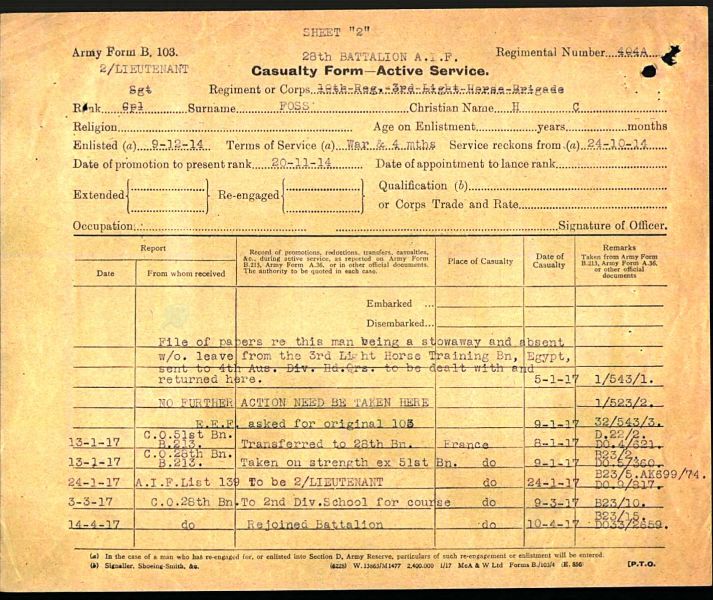 SHEET "2"
Army Form B. 103.
28th BATTALION A.I.F.
Regimental Number 404A
2/LIEUTENANT
Casualty Form—Active Service.
Sgt
Regiment or Corps 10th Reg. 3rd Light Horse Brigade
Rank Cpl Surname FOSS Christian Name H C
Religion Age on Enlistment years months
Enlisted (a) 9-12-14 Terms of Service (a) War & 4 mths Service reckons from (a) 24-10-14
Date of promotion to present rank 20-11-14 Date of appointment to lance rank
Extended Re-engaged Qualification (b)
or Corps Trade and Rate
Occupation Signature of Officer.
Report
Date From whom received
Record of promotions, reductions, transfers, casualties, &c., during active service, as reported on Army Form B.213, Army Form A.36, or in other official documents. The authority to be quoted in each case.
Place of Casualty
Date of Casualty
Remarks
Taken from Army Form B.213, Army Form A.36, or other official documents
Embarked ...
Disembarked...
File of papers re this man being a stowaway and absent
w/o. leave from the 3rd Light Horse Training Bn, Egypt,
sent to 4th Aus. Div. Hd.Qrs. to be dealt with and
returned here. 5-1-17 1/543/1.
NO FURTHER ACTION NEED BE TAKEN HERE 1/523/2.
E.E.F. asked for original 103 9-1-17 32/543/3.
13-1-17 C.O.51st Bn. B.213. Transferred to 28th Bn. France 8-1-17 D.22/2. DO.4/621.
13-1-17 C.O.28th Bn. B.213. Taken on strength ex 51st Bn. do 9-1-17 B23/2. DO.5/360.
24-1-17 A.I.F.List 139 To be 2/LIEUTENANT do 24-1-17 B23/5.AK699/74. DO.9/817.
3-3-17 C.O.28th Bn. To 2nd Div.School for course do 9-3-17 B23/10.
14-4-17 do Rejoined Battalion do 10-4-17 B23/15. DO33/2659.
(a) In the case of a man who has re-engaged for, or enlisted into Section D, Army Reserve, particulars of such re-engagement or enlistment will be entered.
(b) Signaller, Shoeing-Smith, &c. (6225) W.13663/M1477 2,400,000 1/17 McA & W Ltd Forms B./103/4 (E. 856) [P.T.O.